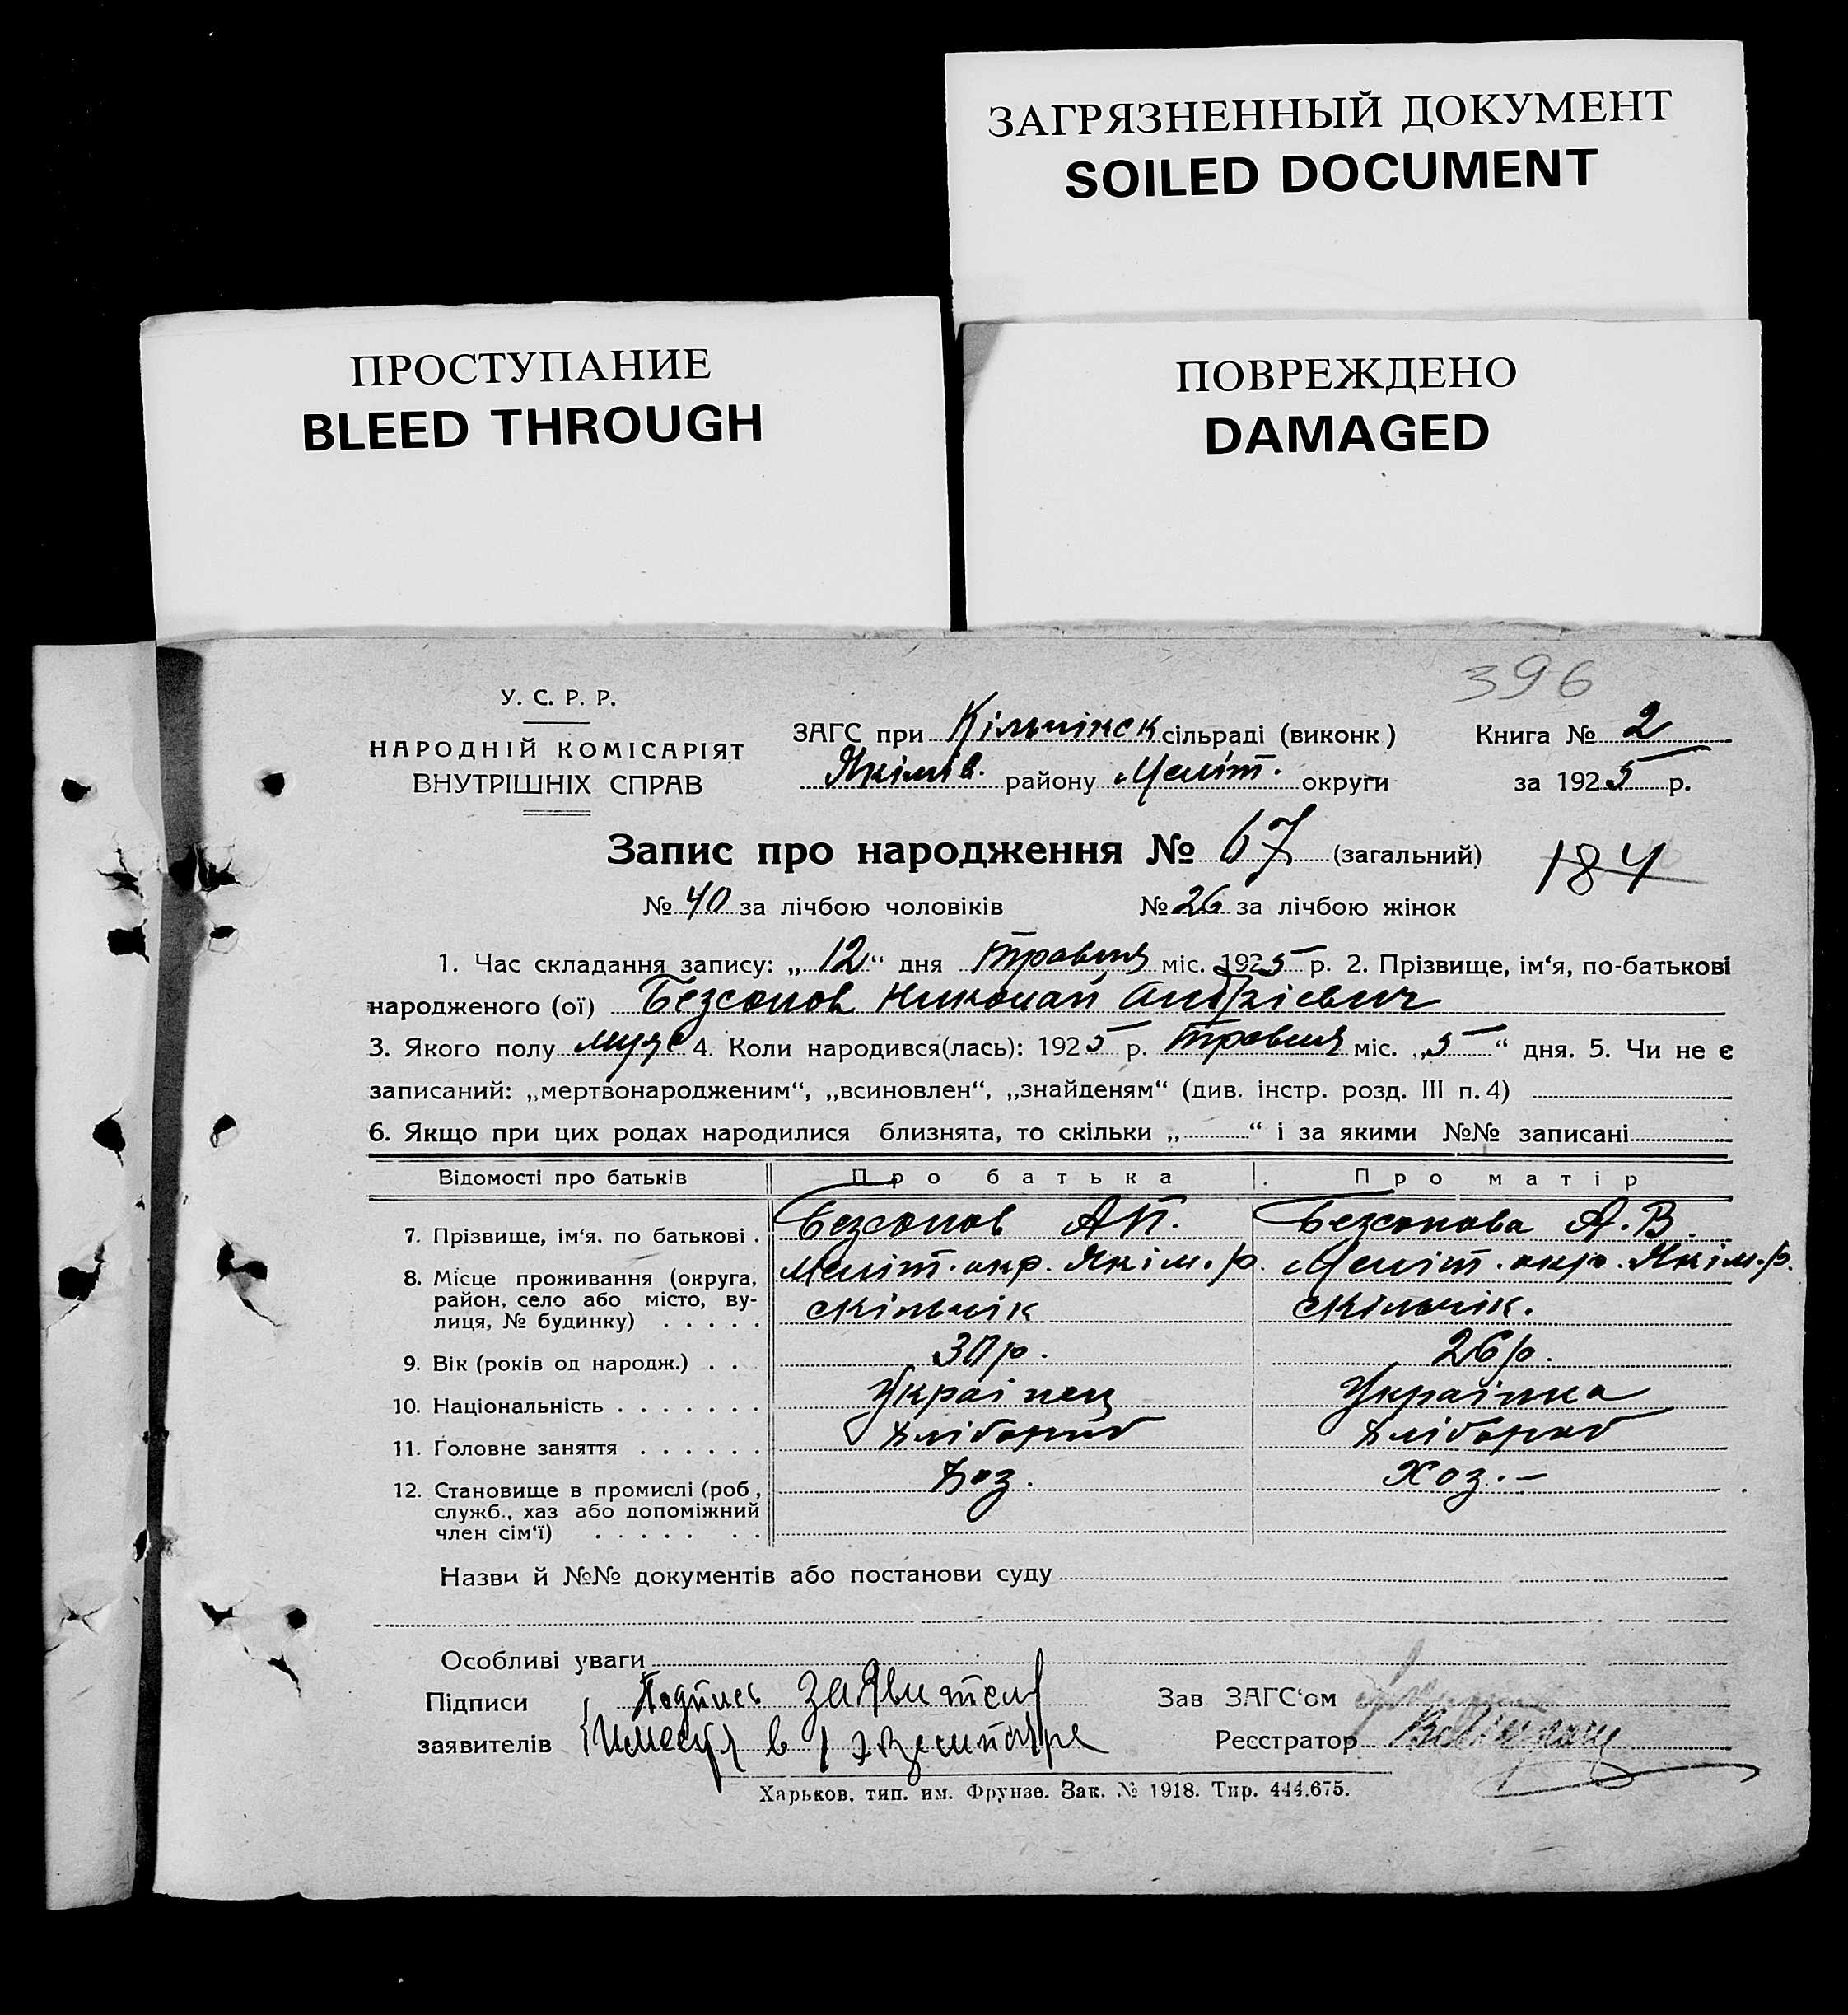 ЗАГРЯЗНЕННЫЙ ДОКУМЕНТ
SOILED DOCUMENT
ПРОСТУПАНИЕ
BLEED THROUGH
ПОВРЕЖДЕНО
DAMAGED
396
У. С. Р. Р.
НАРОДНІЙ КОМІСАРІЯТ
ВНУТРІШНІХ СПРАВ
ЗАГС при Кільчікск сільраді (виконк)
Якімів. району Меліт. округи
Книга № 2
за 1925 р.
Запис про народження № 67 (загальний)
184
№ 40 за лічбою чоловіків № 26 за лічбою жінок
1. Час складання запису: „12" дня травня міс. 1925 р. 2. Прізвище, ім'я, по-батькові
народженого (ої) Безсонов Николай Андріевич
3. Якого полу муж 4. Коли народився(лась): 1925 р. травня міс. „5" дня. 5. Чи не є
записаний: „мертвонародженим", „всиновлен", „знайденям" (див. інстр. розд. III п. 4)
6. Якщо при цих родах народилися близнята, то скільки „ " і за якими №№ записані
Відомості про батьків Про батька Про матір
7. Прізвище, ім'я, по батькові . Безсонов А П. Безсонова А. В.
8. Місце проживання (округа, Меліт. окр. Якім. р. Меліт. окр. Якім. р.
район, село або місто, ву- с Кільчік с Кільчік.
лиця, № будинку) . . . . .
9. Вік (років од народж.) . . . 30 р. 26 р.
10. Національність . . . . . . . Українец Українка
11. Головне заняття . . . . . . Хлібороб Хлібороб
12. Становище в промислі (роб, Хоз. Хоз. –
служб., хаз або допоміжний
член сім'ї) . . . . . . .
Назви й №№ документів або постанови суду
Особливі уваги
Підписи Подпись Заявителя Зав ЗАГС'ом
заявителів Имеется в 1 экземпляре Реєстратор
Харьков, тип. им. Фрунзе. Зак. № 1918. Тир. 444.675.